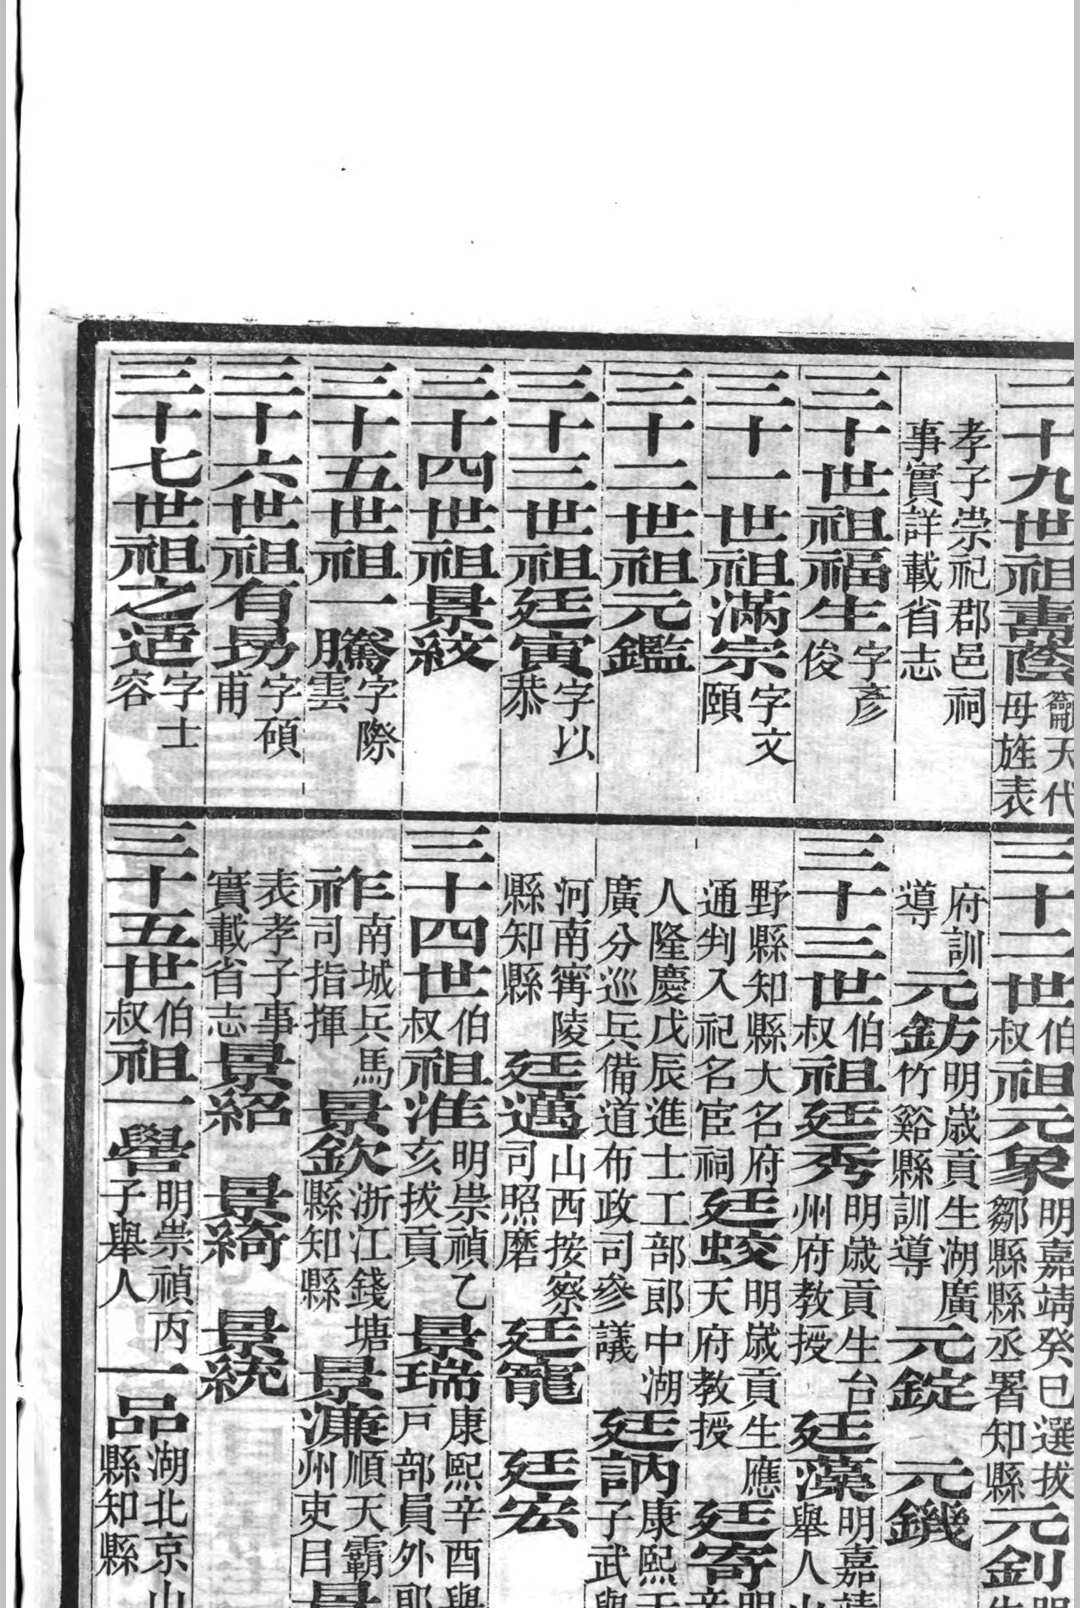 二十九世祖壽蔭籲天代母旌表
孝子崇祀郡邑祠事實詳載省志
三十世祖福生字彥俊
三十一世祖滿宗字文頤
三十二世祖元鑑
三十三世祖廷寅字以恭
三十四世祖景紋
三十五世祖一騰字際雲
三十六世祖有昜字碩甫
三十七世祖之适字士容
三十二世伯叔祖元象明嘉靖癸巳選拔鄒縣縣丞署知縣元釗
府訓導元鈁明歲貢生湖廣竹谿縣訓導元錠元鐖
三十三世伯叔祖廷秀明歲貢生台州府教授廷藻明嘉靖舉人
野縣知縣大名府通判入祀名宦祠廷蛟明歲貢生應天府教授廷寄
人隆慶戊辰進士工部郎中湖廣分巡兵備道布政司參議廷訥康熙子武
河南甯陵縣知縣廷邁山西按察司照磨廷寵廷宏
三十四世伯叔祖淮明崇禎乙亥拔貢景瑞康熙辛酉戶部員外
祚南城兵馬司指揮景欽浙江錢塘縣知縣景濂順天霸州吏目
表孝子事實載省志景紹景綺景統
三十五世伯叔祖一譽明崇禎丙子舉人一品湖北京山縣知縣